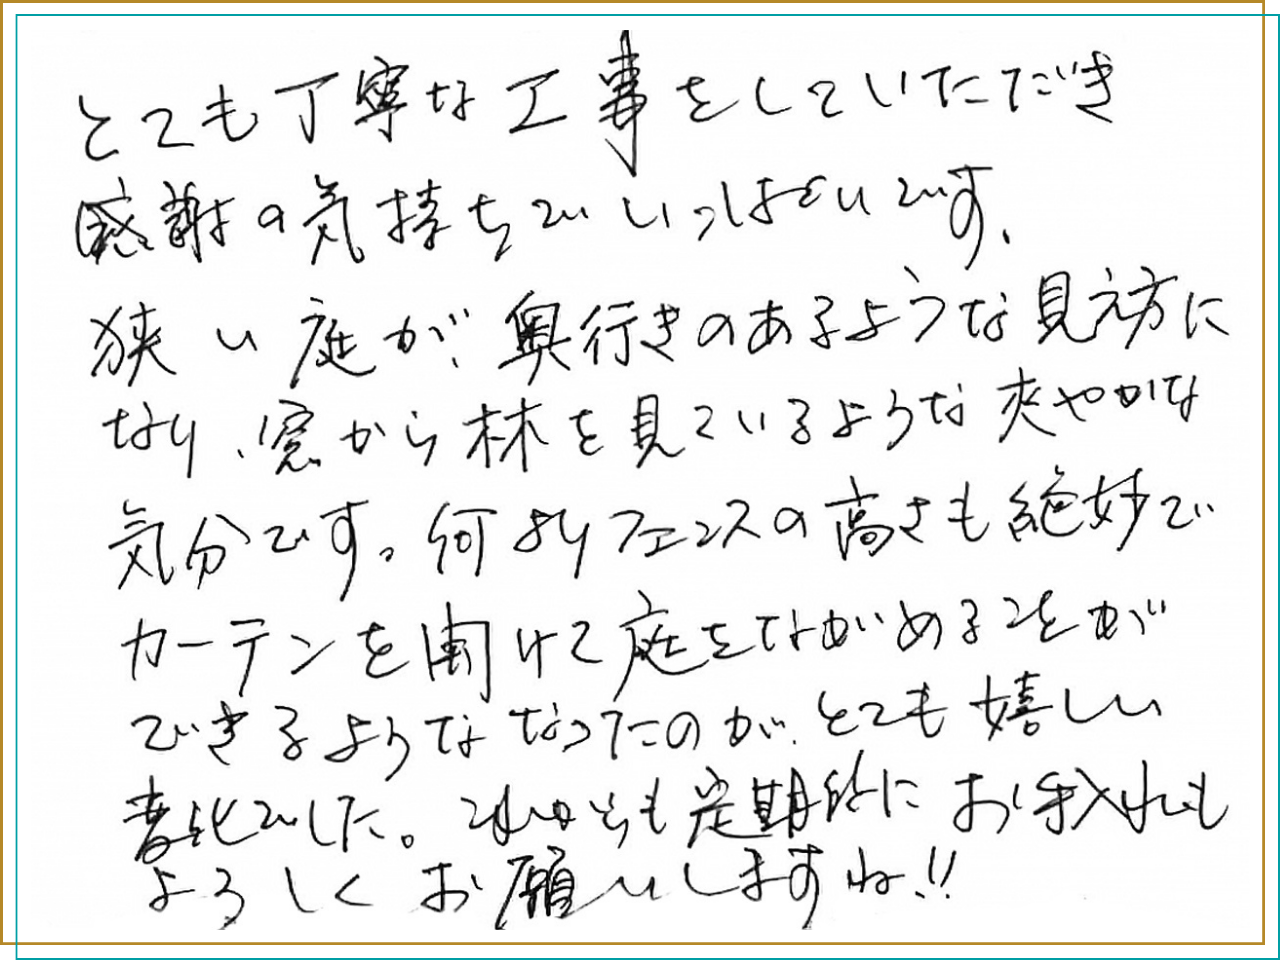 とても丁寧な工事をしていただき
感謝の気持ちでいっぱいです、
狭い庭が、奥行きのあるような見え方に
なり、窓から林を見ているような爽やかな
気分です。何よりフェンスの高さも絶妙で
カーテンを開けて庭をながめることが
できるようななったのが、とても嬉しい
変化でした。これからも定期的にお手入れも
よろしくお願いしますね!!